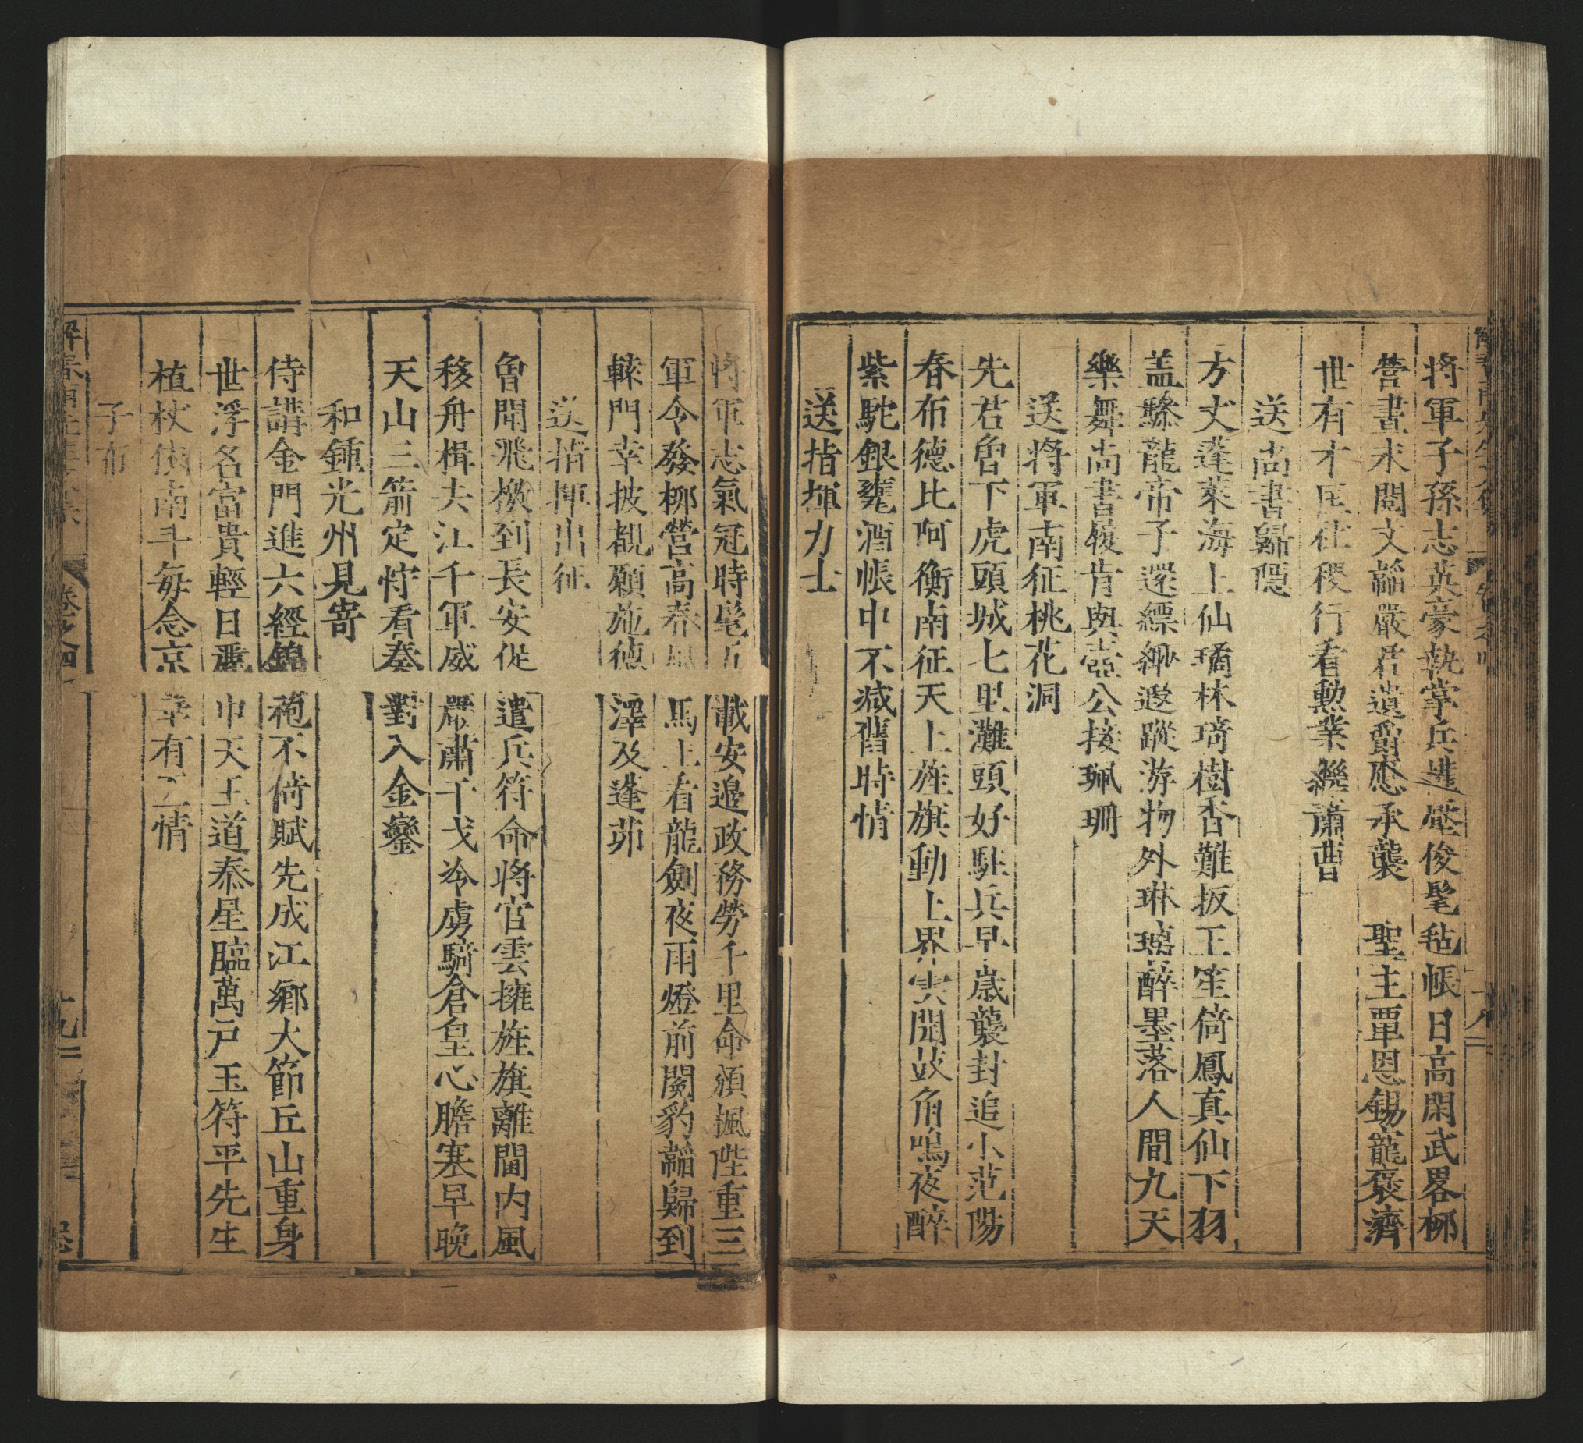 將軍子孫志英豪執掌兵進歷俊髦氊帳日高閑武畧柳
營書永閱文韜嚴君遺爵恩承襲　聖主覃恩錫寵褒濟
世有才匡社稷行看勳業繼蕭曹
送尚書歸隱
方丈蓬萊海上仙璚林琦樹杳難扳玉笙倚鳳真仙下羽
盖驂龍帝子還縹緲遨蹤游物外琳瑯醉墨落人間九天
樂舞尚書履肯與壺公接珮珊
送將軍南征桃花洞
先君魯下虎頭城七里灘頭好駐兵早歲襲封追小范陽
春布德比阿衡南征天上旌旗動上界雲開鼓角鳴夜醉
紫駝銀甕酒帳中不减舊時情
送指揮力士
將軍志氣冠時髦五載安邊政務勞千里命頒楓陛重三
軍令發柳營高春風馬上看龍劍夜雨燈前閱豹韜歸到
轅門幸披覩願施德澤及蓬茆
送指揮出征
魯聞飛檄到長安促遣兵符命將官雲擁旌旗離閫内風
移舟楫夫江千軍威嚴肅干戈冷虜騎倉皇心膽寒早晚
天山三箭定竚看奏對入金鑾
和鍾光州見寄
侍講金門進六經錦袍不倚賦先成江鄉大節丘山重身
世浮名富貴輕日麗中天王道泰星臨萬戶玉符平先生
植杖儐南斗每念京華有 情
子布
解春雨先生文集　卷之四　十九